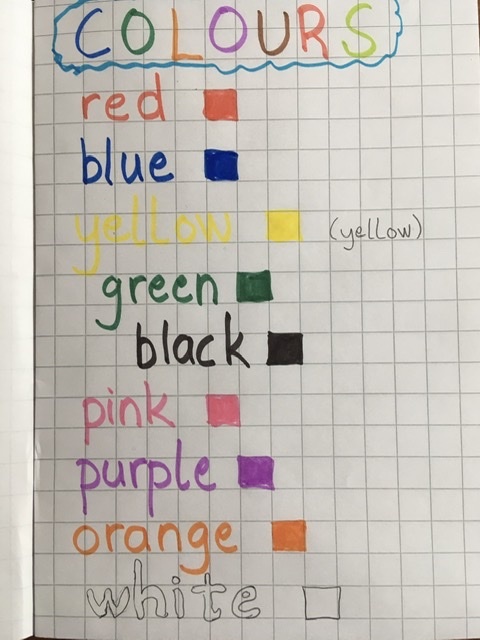 COLOURS
red
blue
yellow (yellow)
green
black
pink
purple
orange
white